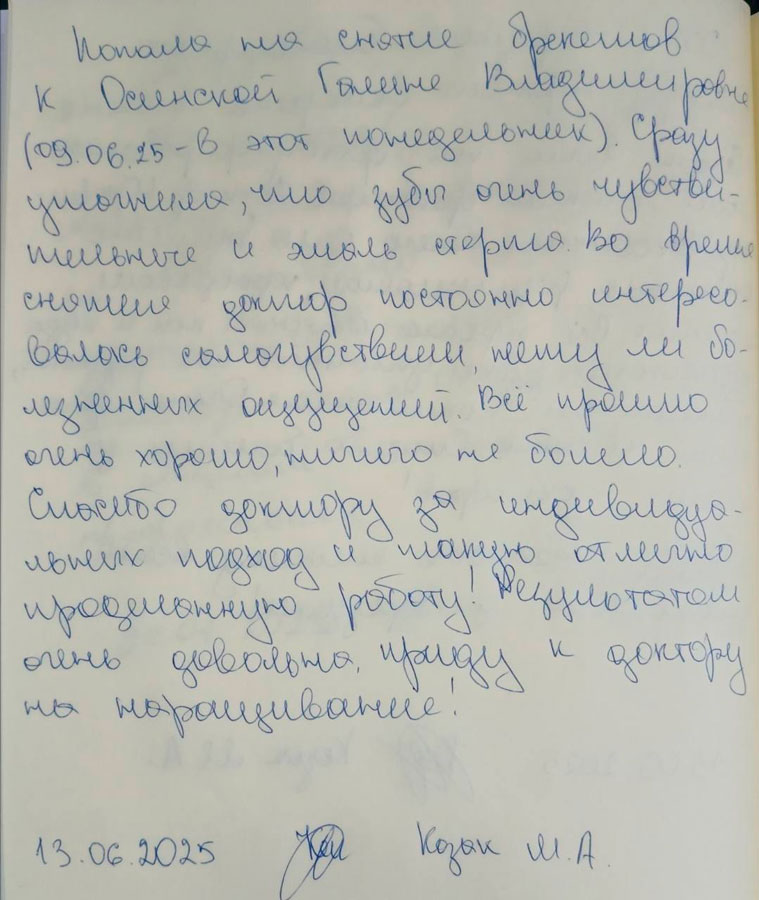 Попала на снятие брекетов
к Осинской Галине Владимировне
(09.06.25 - в этот понедельник). Сразу
уточнила, что зубы очень чувстви-
тельные и эмаль стерта. Во время
снятия доктор постоянно интересо-
валась самочувствием, нету ли бо-
лезненных ощущений. Всё прошло
очень хорошо, ничего не болело.
Спасибо доктору за индивидуа-
льных подход и такую отлично
проделанную работу! Результатом
очень довольна, приду к доктору
на наращивание!
13.06.2025 Козак М.А.